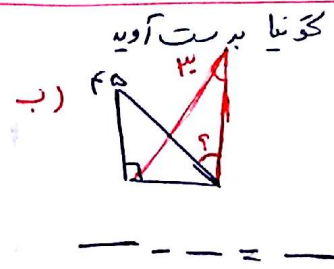 گونیا بدست آورید
۳۰
۴۵
ب)
؟
__ - __ = __